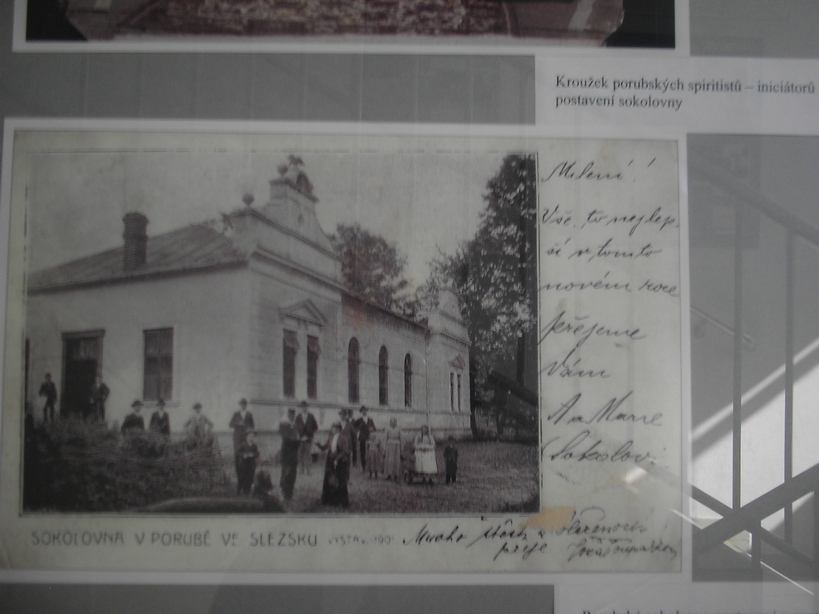 Kroužek porubských spiritistů – iniciátorů
postavení sokolovny
Milení!
Vše to nejlep
ší v tomto
novém roce
přejeme
Vám
A a Marie
Sokolovi
SOKOLOVNA V PORUBĚ VE SLEZSKU
Mnoho štěstí a
přeje